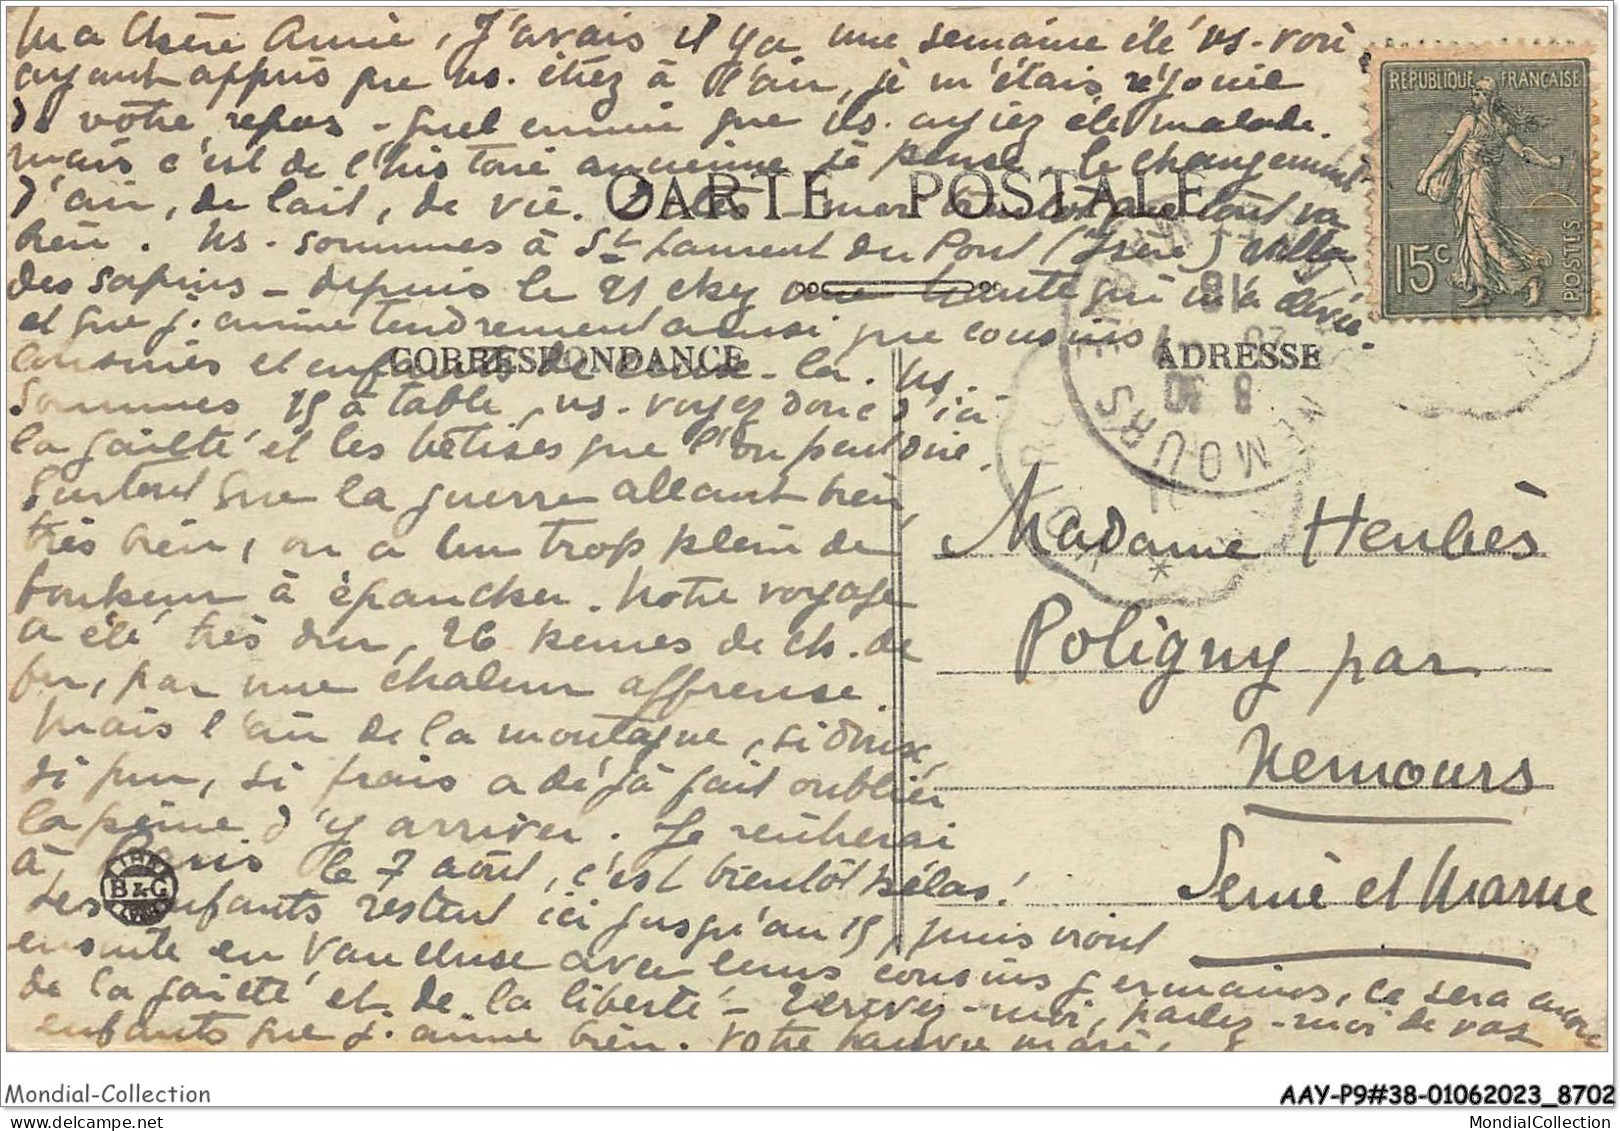 Ma chère Amie, J'avais il y a une semaine été vs. voir
ayant appris que vs. étiez à l'air, je m'étais réjouie
de votre repos - quel ennui que vs. ayiez été malade.
mais c'est de l'histoire ancienne je pense, le changement
d'air, de lait, de vie. Dites - moi bientôt que tout va
bien. Ns. sommes à St Laurent du Pont (Isère) Villa
des Sapins - depuis le 21 chez une tante qui m'a élevée
et que j'aime tendrement ainsi que cousins
cousines et enfants de ceux-là. Ns.
sommes 15 à table, vs. voyez donc d'ici
la gaieté et les bêtises que l'on peut dire.
Surtout que la guerre allant bien,
très bien, on a un trop plein de
bonheur à épancher. Notre voyage
a été très dur, 26 heures de ch. de
fer, par une chaleur affreuse.
Mais l'air de la montagne, si doux,
si pur, si frais a déjà fait oublier
la peine d'y arriver. Je rentrerai
à Paris le 7 août, c'est bientôt hélas!
Les enfants restent ici jusqu'au 15, puis iront
ensuite en Vaucluse avec leurs cousins germains, ce sera encore
de la gaieté et de la liberté - Ecrivez-moi, parlez-moi de vos
enfants que j'aime bien. Votre pauvre mari,
CARTE POSTALE
CORRESPONDANCE
ADRESSE
RÉPUBLIQUE FRANÇAISE
15c
POSTES
NEMOURS
Madame Heubès
Poligny par
Nemours
Seine et Marne
B&G
Mondial-Collection
AAY-P9#38-01062023_8702
MondialCollection